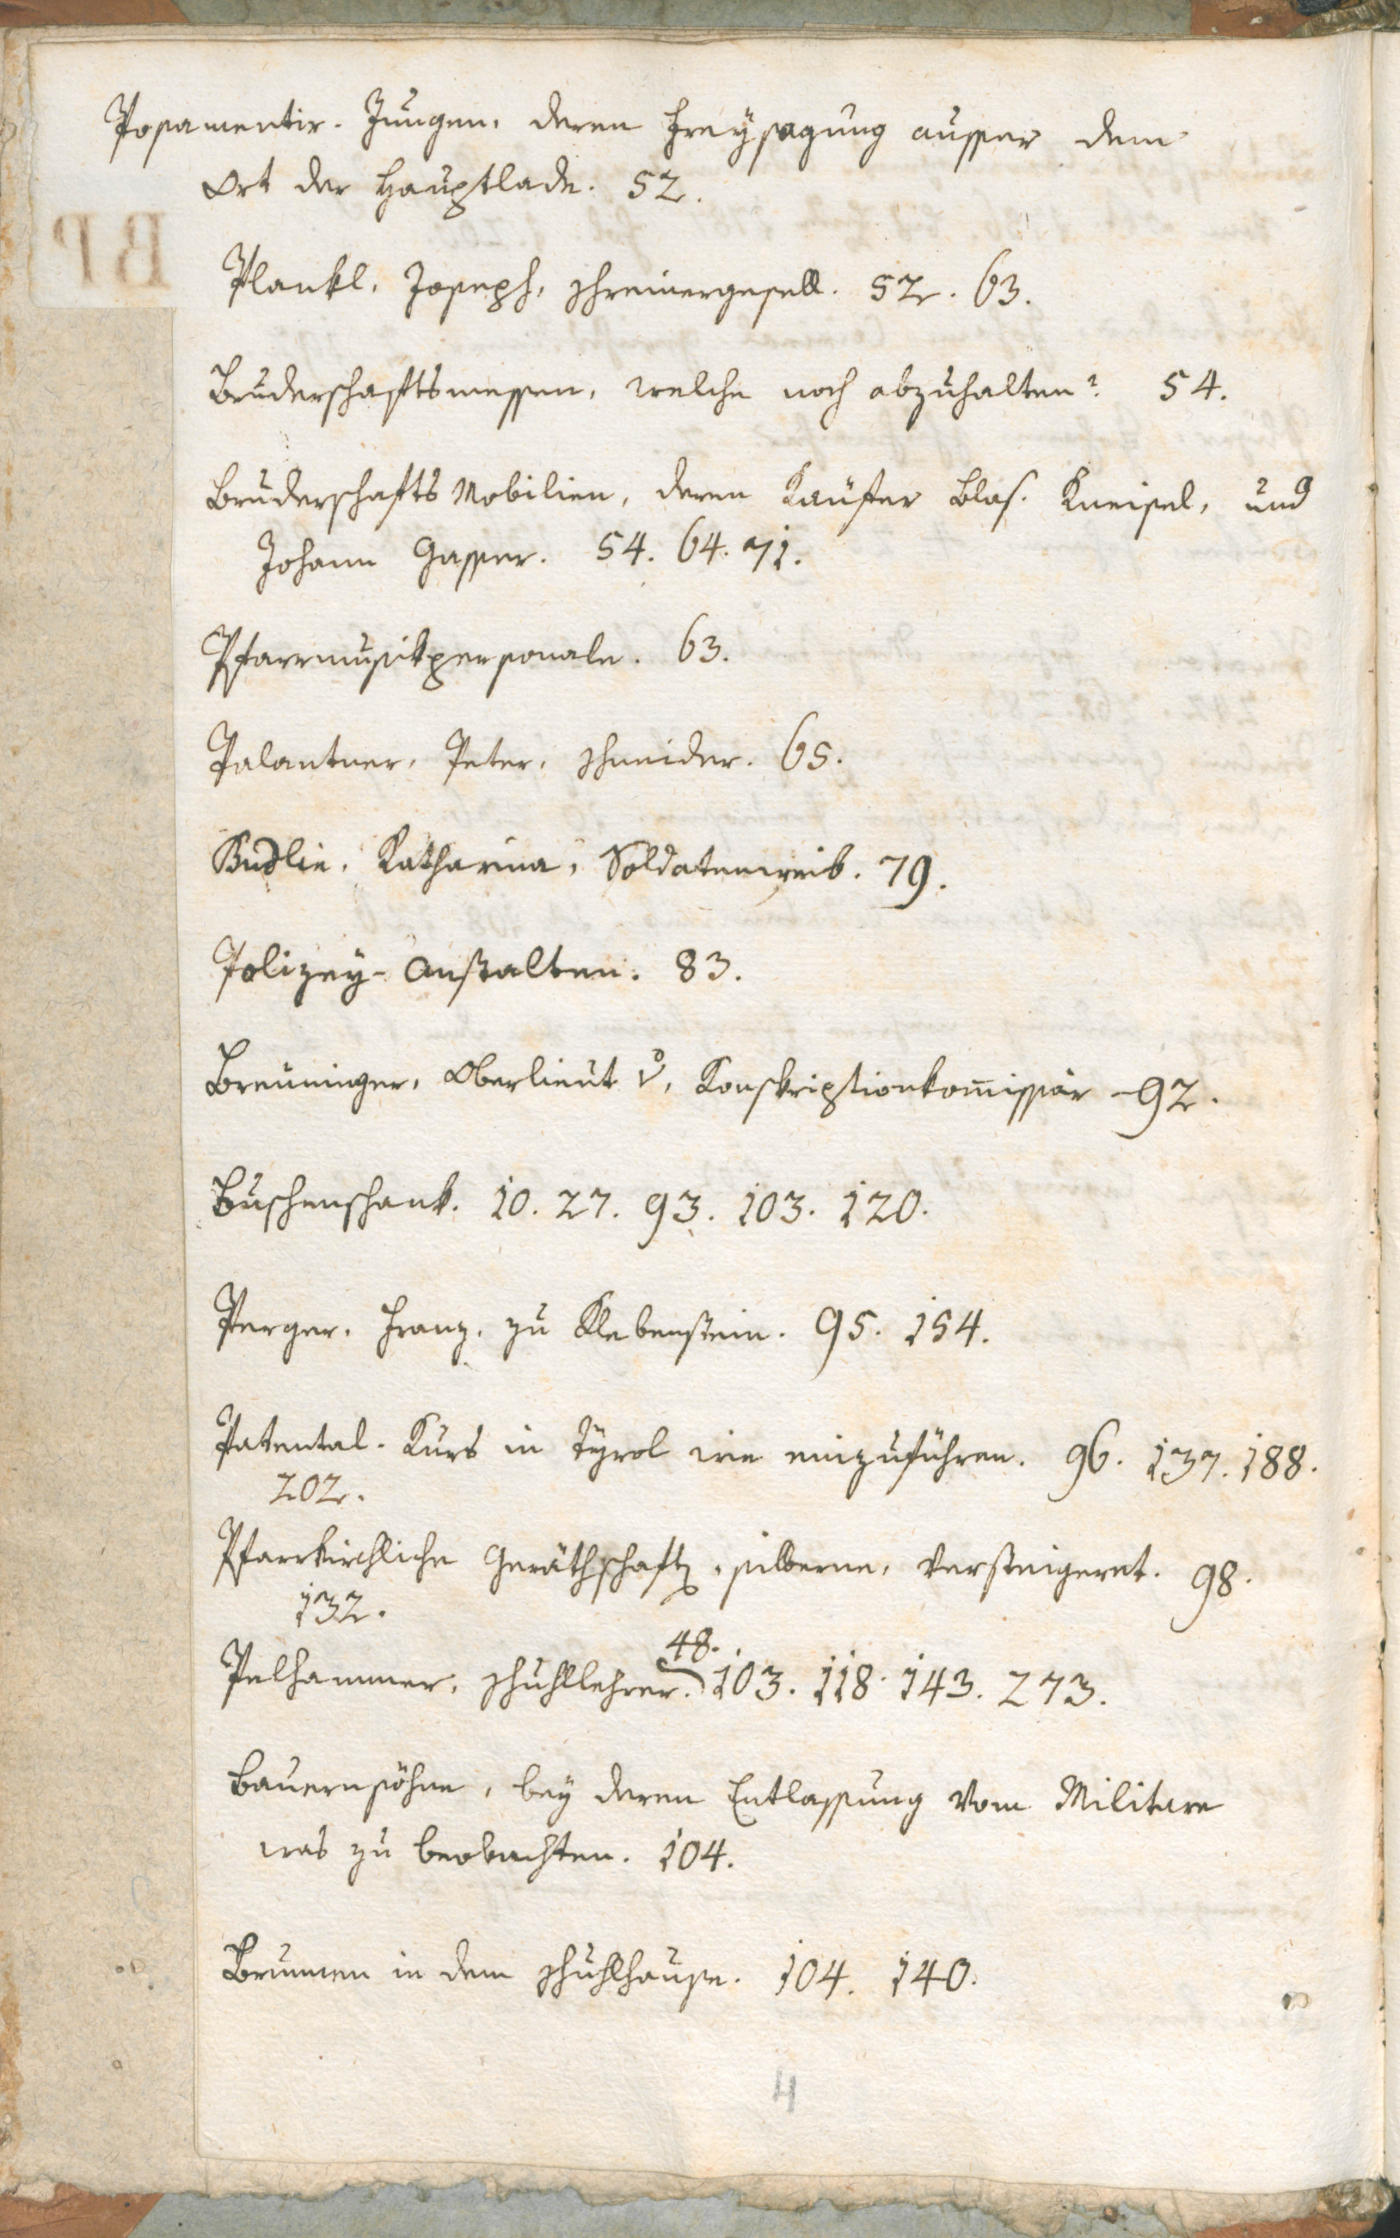 Posamentir-Jungen, deren Freysagung ausser dem
Ort der Hauptlade. 52.
BP
Plankl, Joseph, Schreinergesell. 52. 63.
Bruderschaftsmessen, welche noch abzuhalten? 54.
Bruderschafts Mobilien, deren Käufer Blas. Kneisel, und
Johann Gasser. 54. 64. 71.
Pfarrmusikpersonale. 63.
Palantner, Peter, Schneider. 65.
Budlin, Katharina, Soldatenweib. 79.
Polizey-Anstalten. 83.
Breuninger, Oberlieut. Konskriptionkom̄issär 92.
Buschenschank. 10. 27. 93. 103. 120.
Perger, Franz, zu Klebenstein. 95. 154.
Patental-Kurs in Tyrol wie einzuführen. 96. 137. 188.
202.
Pfarrkirchliche Geräthschaften, silberne, versteigeret. 98.
132.
48.
Pelhammer, Schullehrer. 103. 118. 143. 273.
Bauernsöhne, bey deren Entlassung vom Militare
was zu beobachten. 104.
Brunnen in dem Schuhlhause. 104. 140.
4